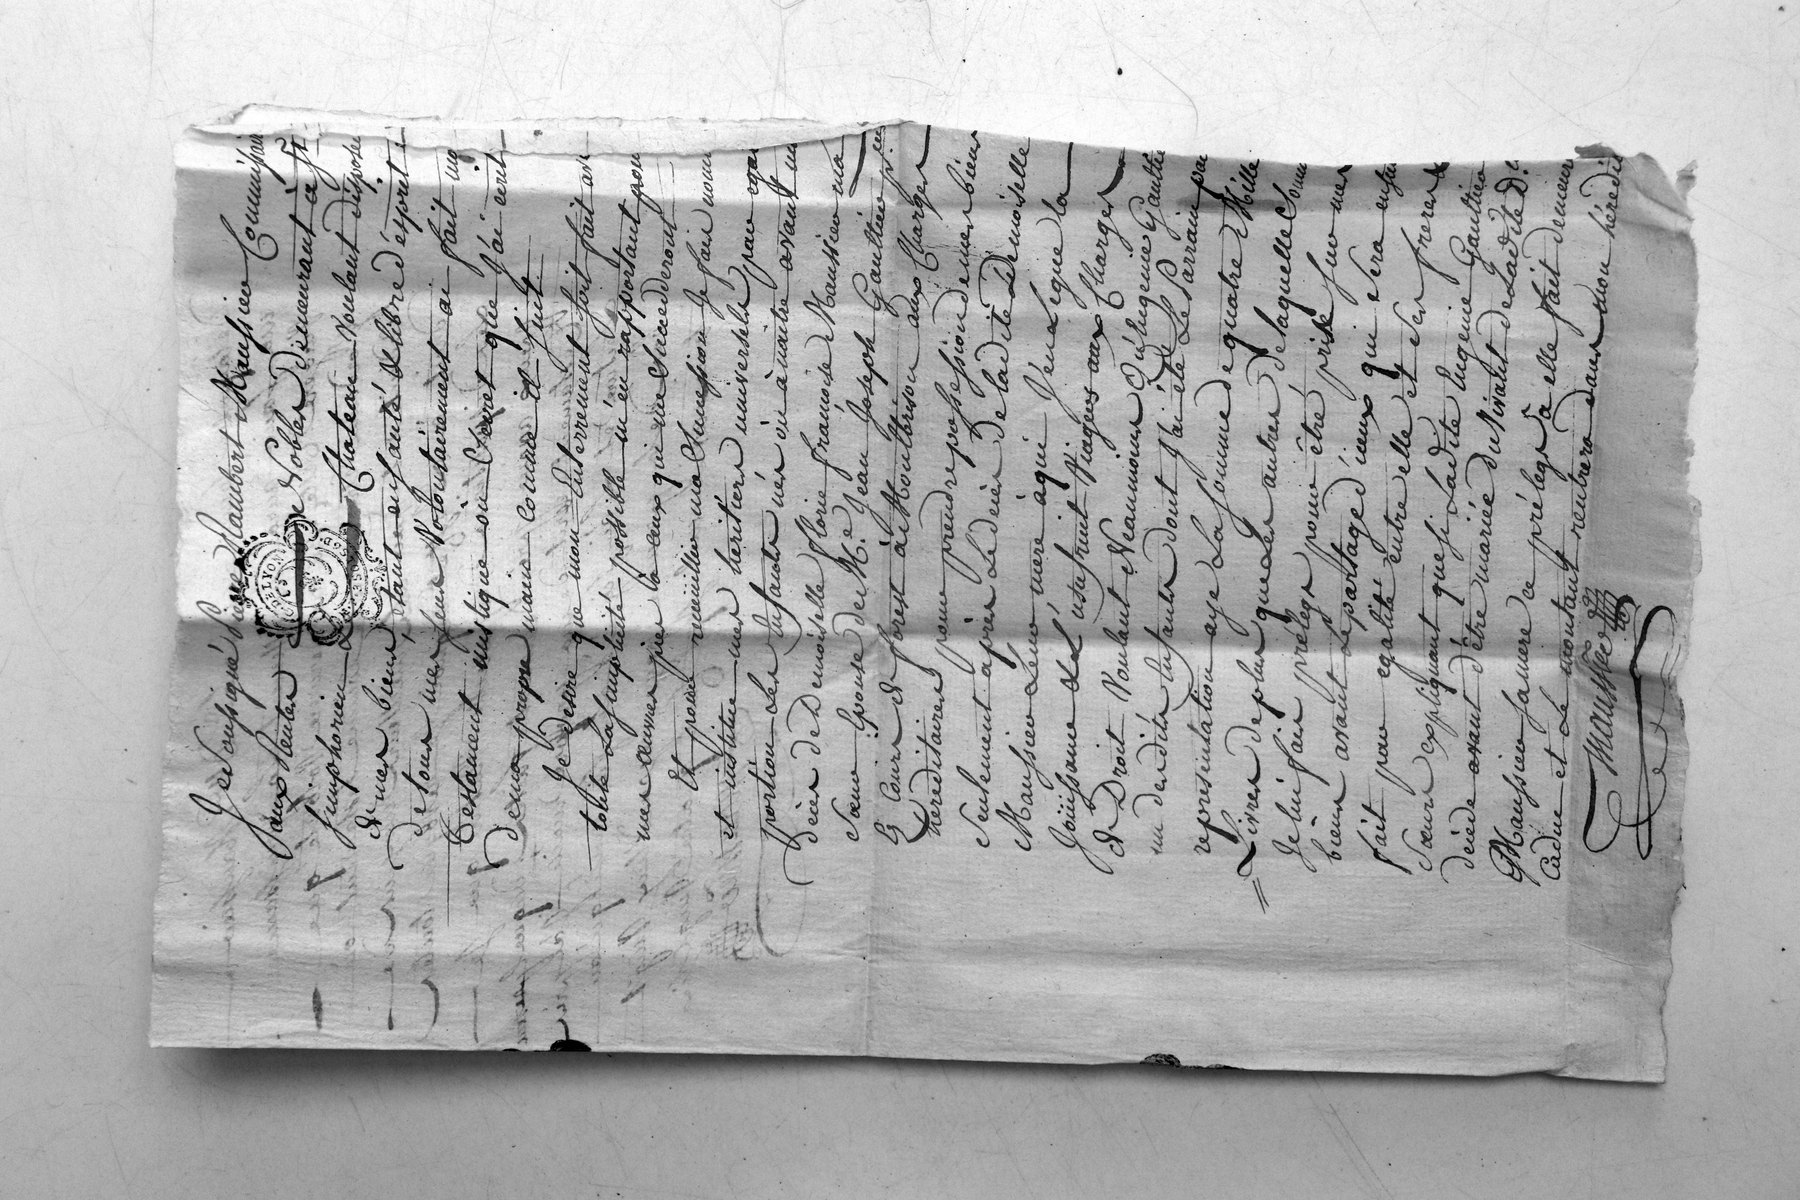 Je Soussigné Pierre Flambert Maussier Commissaire
aux Rentes Nobles Demeurant à St
simphorien Le Chateau voulant disposer
de mes biens tant en santé & libre d'esprit
De tous mes sens Volontairement ai fait mon
Testament mistique où Secret que J'ai écrit
De ma propre main comme il suit
Je desire que mon Enterrement soit fait avec
toute La simplicité possible m'en rapportant pour
mes œuvres pies à ceux qui me Succederont
Et pour recueillir ma Succession Je fais nomme
et institue mes heritiers universels par egale
portion Les Enfants nés où à naitre avant mon
décès de Demoiselle Florie francoise Maussier ma
Sœur Epouse de Me Jean Joseph Gaultier
Es Cours de forest à Montbrison aux Charges
hereditaires pour prendre possession de mes biens
seulement après Le décès de Ladite Demoiselle
Maussier Leur mere à qui J'en Legue La
Jouissance & L'usufruit Viagers aux Charges
de Droit Voulant Neanmoins qu'Eugenie Gaultier
un desdits Enfants dont J'ai été Le Parrain par
representation aye La somme de quatre Mille
Livres de plus que Les autres de Laquelle Somme
Je lui fais prélegs pour être prise sur mes
biens avant Le partage d'iceux qui sera ensuite
fait par egalité entre elle et ses freres &
Sœurs expliquant que si Ladite Eugenie Gaultier
décède avant d'être mariée du vivant de Ladite D.
Maussier sa mere ce prélegs à elle fait demeure
Caduc et Le montant rentrera dans mon hérédité
Maussier
DE LYON